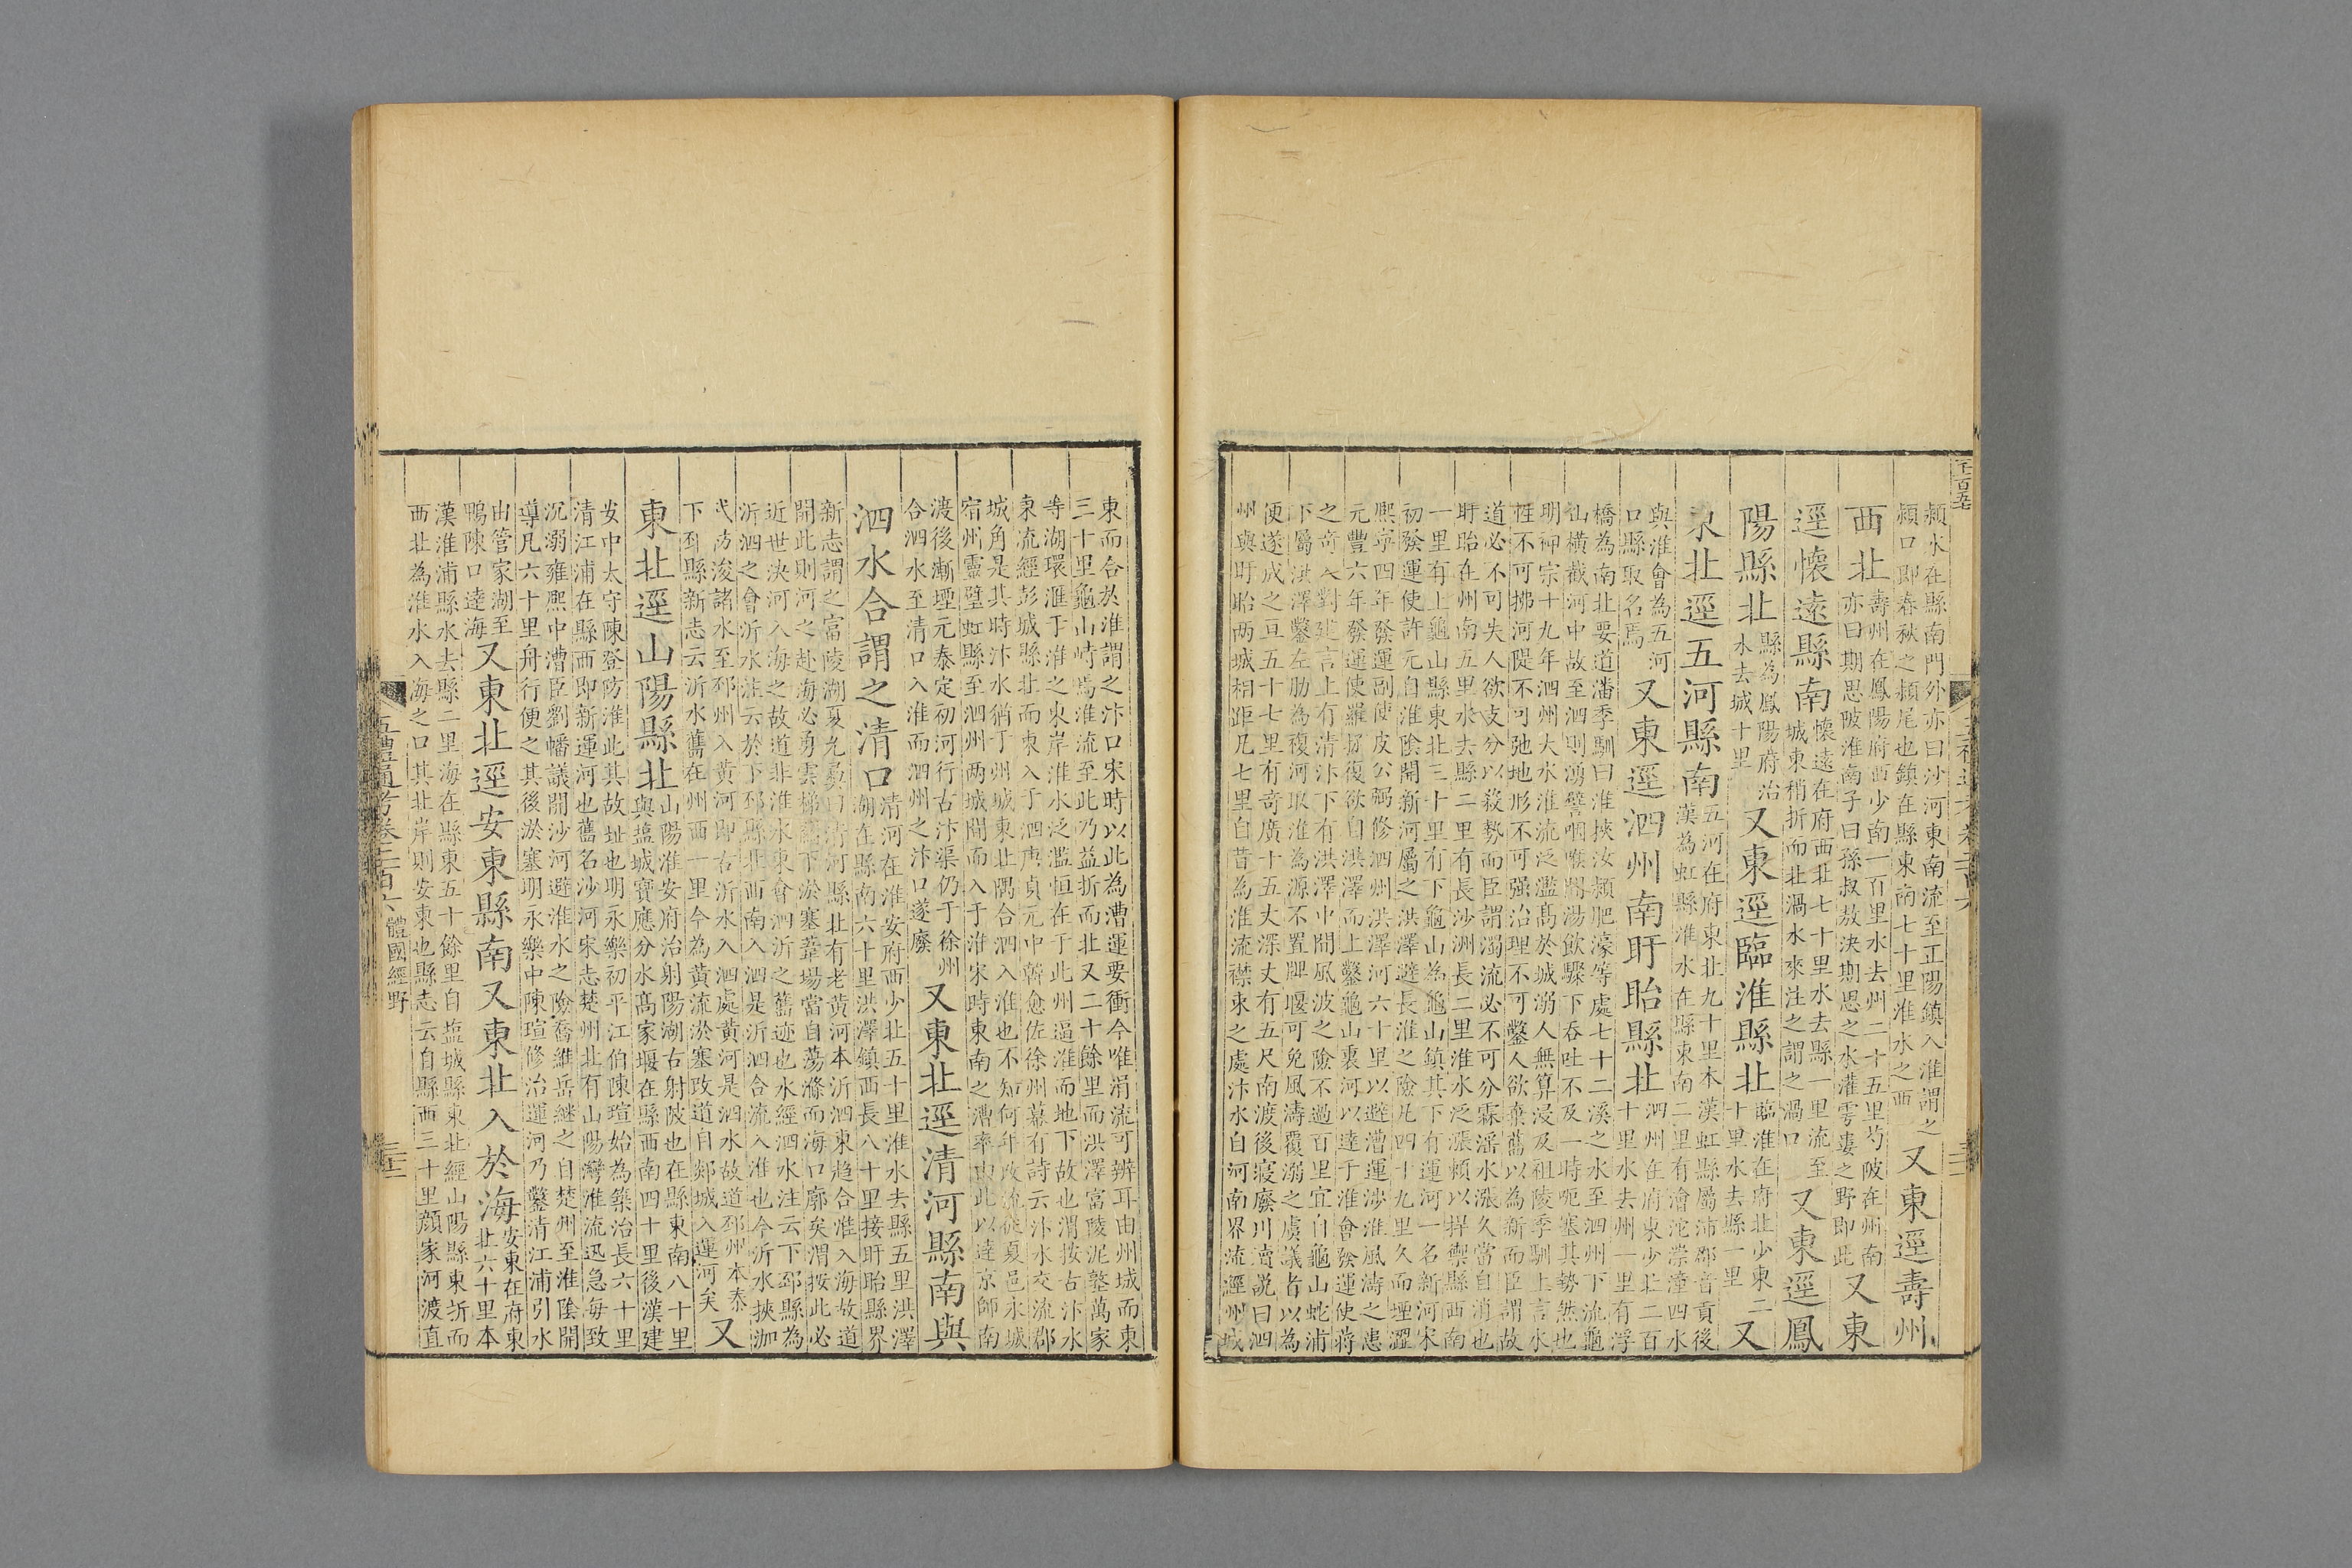 潁水在縣南門外亦曰沙河東南流至正陽鎮入淮謂之
潁口即春秋之潁尾也鎮在縣東南七十里淮水之西
又東逕壽州
西北
壽州在鳳陽府西少南一百里水去州二十五里芍陂在州南
亦曰期思陂淮南子曰孫叔敖決期思之水灌雩婁之野即此
又東
逕懷遠縣南
懷遠在府西北七十里水去縣一里流至
城東稍折而北渦水來注之謂之渦口
又東逕鳳
陽縣北
縣為鳳陽府治
水去城十里
又東逕臨淮縣北
臨淮在府北少東二
十里水去縣一里
又
東北逕五河縣南
五河在府東北九十里本漢虹縣屬沛郡音貢後
漢為虹縣淮水在縣東南二里有澮沱漴潼四水
與淮會為五河
口縣取名焉
又東逕泗州南盱眙縣北
泗州在府東少北二百
十里水去州一里有浮
橋為南北要道潘季馴曰淮挾汝潁肥濠等處七十二溪之水至泗州下流龜
山橫截河中故至泗則湧譬咽喉間湯飲驟下吞吐不及一時呃塞其勢然也
明神宗十九年泗州大水淮流泛濫高於城溺人無算浸及祖陵季馴上言水
性不可拂河隄不可弛地形不可强治理不可鑿人欲棄舊以為新而臣謂故
道必不可失人欲支分以殺勢而臣謂濁流必不可分霖淫水漲久當自消也
盱眙在州南五里水去縣二里有長沙洲長二里淮水泛漲頼以捍禦縣西南
一里有上龜山縣東北三十里有下龜山為龜山鎮其下有運河一名新河宋
初發運使許元自淮陰開新河屬之洪澤避長淮之險凡四十九里久而堙澀
熙寧四年發運副使皮公弼修泗州洪澤河六十里以避漕運涉淮風濤之患
元豐六年發運使羅拯復欲自洪澤而上鑿龜山裏河以達于淮會發運使蔣
之奇入對建言上有清汴下有洪澤中間風波之險不過百里宜自龜山蛇浦
下屬洪澤鑿左肋為複河取淮為源不置牐堰可免風濤覆溺之虞議者以為
便遂成之亘五十七里有奇廣十五丈深丈有五尺南渡後寖廢川瀆說曰泗
州與盱眙两城相距凡七里自昔為淮流襟束之處汴水自河南界流逕州城
東而合於淮謂之汴口宋時以此為漕運要衝今唯涓流可辨耳由州城而東
三十里龜山峙焉淮流至此乃益折而北又二十餘里而洪澤富陵泥墪萬家
等湖環滙于淮之東岸淮水泛濫恒在于此州逼淮而地下故也渭按古汴水
東流經彭城縣北而東入于泗唐貞元中韓愈佐徐州幕有詩云汴水交流郡
城角是其時汴水猶于州城東北隅合泗入淮也不知何年改流從夏邑永城
宿州靈璧虹縣至泗州两城間而入于淮宋時東南之漕率由此以達京師南
渡後漸堙元泰定初河行古汴渠仍于徐州
合泗水至清口入淮而泗州之汴口遂廢
又東北逕清河縣南與
泗水合謂之清口
清河在淮安府西少北五十里淮水去縣五里洪澤
湖在縣南六十里洪澤鎮西長八十里接盱眙縣界
新志謂之富陵湖夏允彝曰清河縣北有老黄河本沂泗東趨合淮入海故道
開此則河之赴海必勇雲梯關下淤塞葦場當自蕩滌而海口廓矣渭按此必
近世決河入海之故道非淮水東會泗沂之舊迹也水經泗水注云下邳縣為
沂泗之會沂水注云於下邳縣北西南入泗是沂泗合流入淮也今沂水挾泇
武沭浚諸水至邳州入黄河即古沂水入泗處黄河是泗水故道邳州本泰
下邳縣新志云沂水舊在州西一里今為黄流淤塞改道自郯城入運河矣
又
東北逕山陽縣北
山陽淮安府治射陽湖古射陂也在縣東南八十里
與塩城寶應分水高家堰在縣西南四十里後漢建
安中太守陳登防淮此其故址也明永樂初平江伯陳瑄始為築治長六十里
清江浦在縣西即新運河也舊名沙河宋志楚州北有山陽灣淮流迅急每致
沉溺雍熙中漕臣劉蟠議開沙河避淮水之險喬維岳繼之自楚州至淮陰開
導凡六十里舟行便之其後淤塞明永樂中陳瑄修治運河乃鑿清江浦引水
由管家湖至
鴨陳口達海
又東北逕安東縣南又東北入於海
安東在府東
北六十里本
漢淮浦縣水去縣二里海在縣東五十餘里自塩城縣東北經山陽縣東折而
西北為淮水入海之口其北岸則安東也縣志云自縣西三十里顔家河渡直
五禮通考卷二百六 體國經野